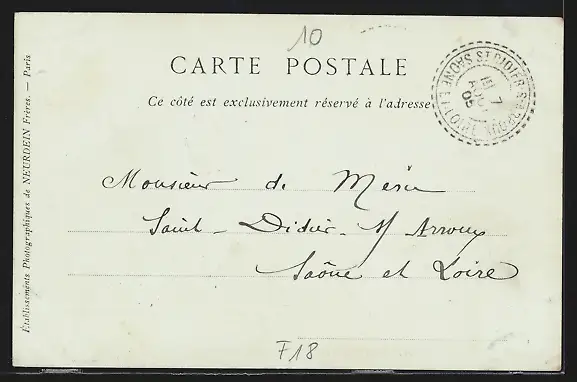 10
CARTE POSTALE
Ce côté est exclusivement réservé à l'adresse
ST DIDIER S ARROUX
SAONE ET LOIRE
7
05
Monsieur de
Saint-Didier-s/ Arroux
Saône et Loire
F18
Établissements Photographiques de NEURDEIN Frères. — Paris